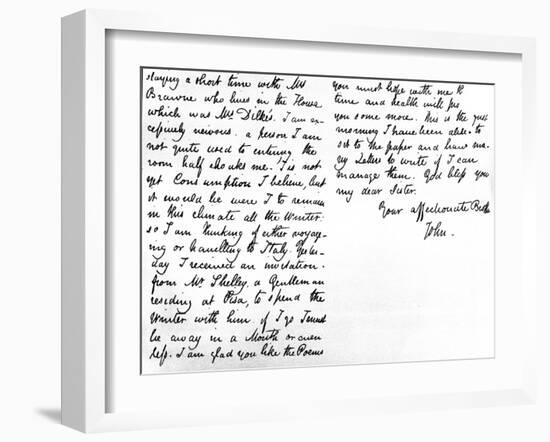 staying a short time with Mrs
Brawne who lives in the House
which was Mrs Dilke's. I am ex-
cessively nervous: a person I am
not quite used to entering the
room half choaks me. 'Tis not
yet Consumption I believe, but
it would be were I to remain
in this climate all the Winter:
so I am thinking of either voyag-
ing or travelling to Italy. Yester-
day I received an invitation
from Mr Shelley, a Gentleman
residing at Pisa, to spend the
Winter with him. if I go I must
be away in a Month or even
less. I am glad you like the Poems
you must hope with me
time and health will
you some more. This is the first
morning I have been able to
sit to the paper and have ma-
ny Letters to write if I can
manage them. God bless you
my dear Sister.
Your affectionate
John.